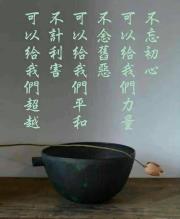 不忘初心
可以給我們力量
不念舊惡
可以給我們平和
不計利害
可以給我們超越